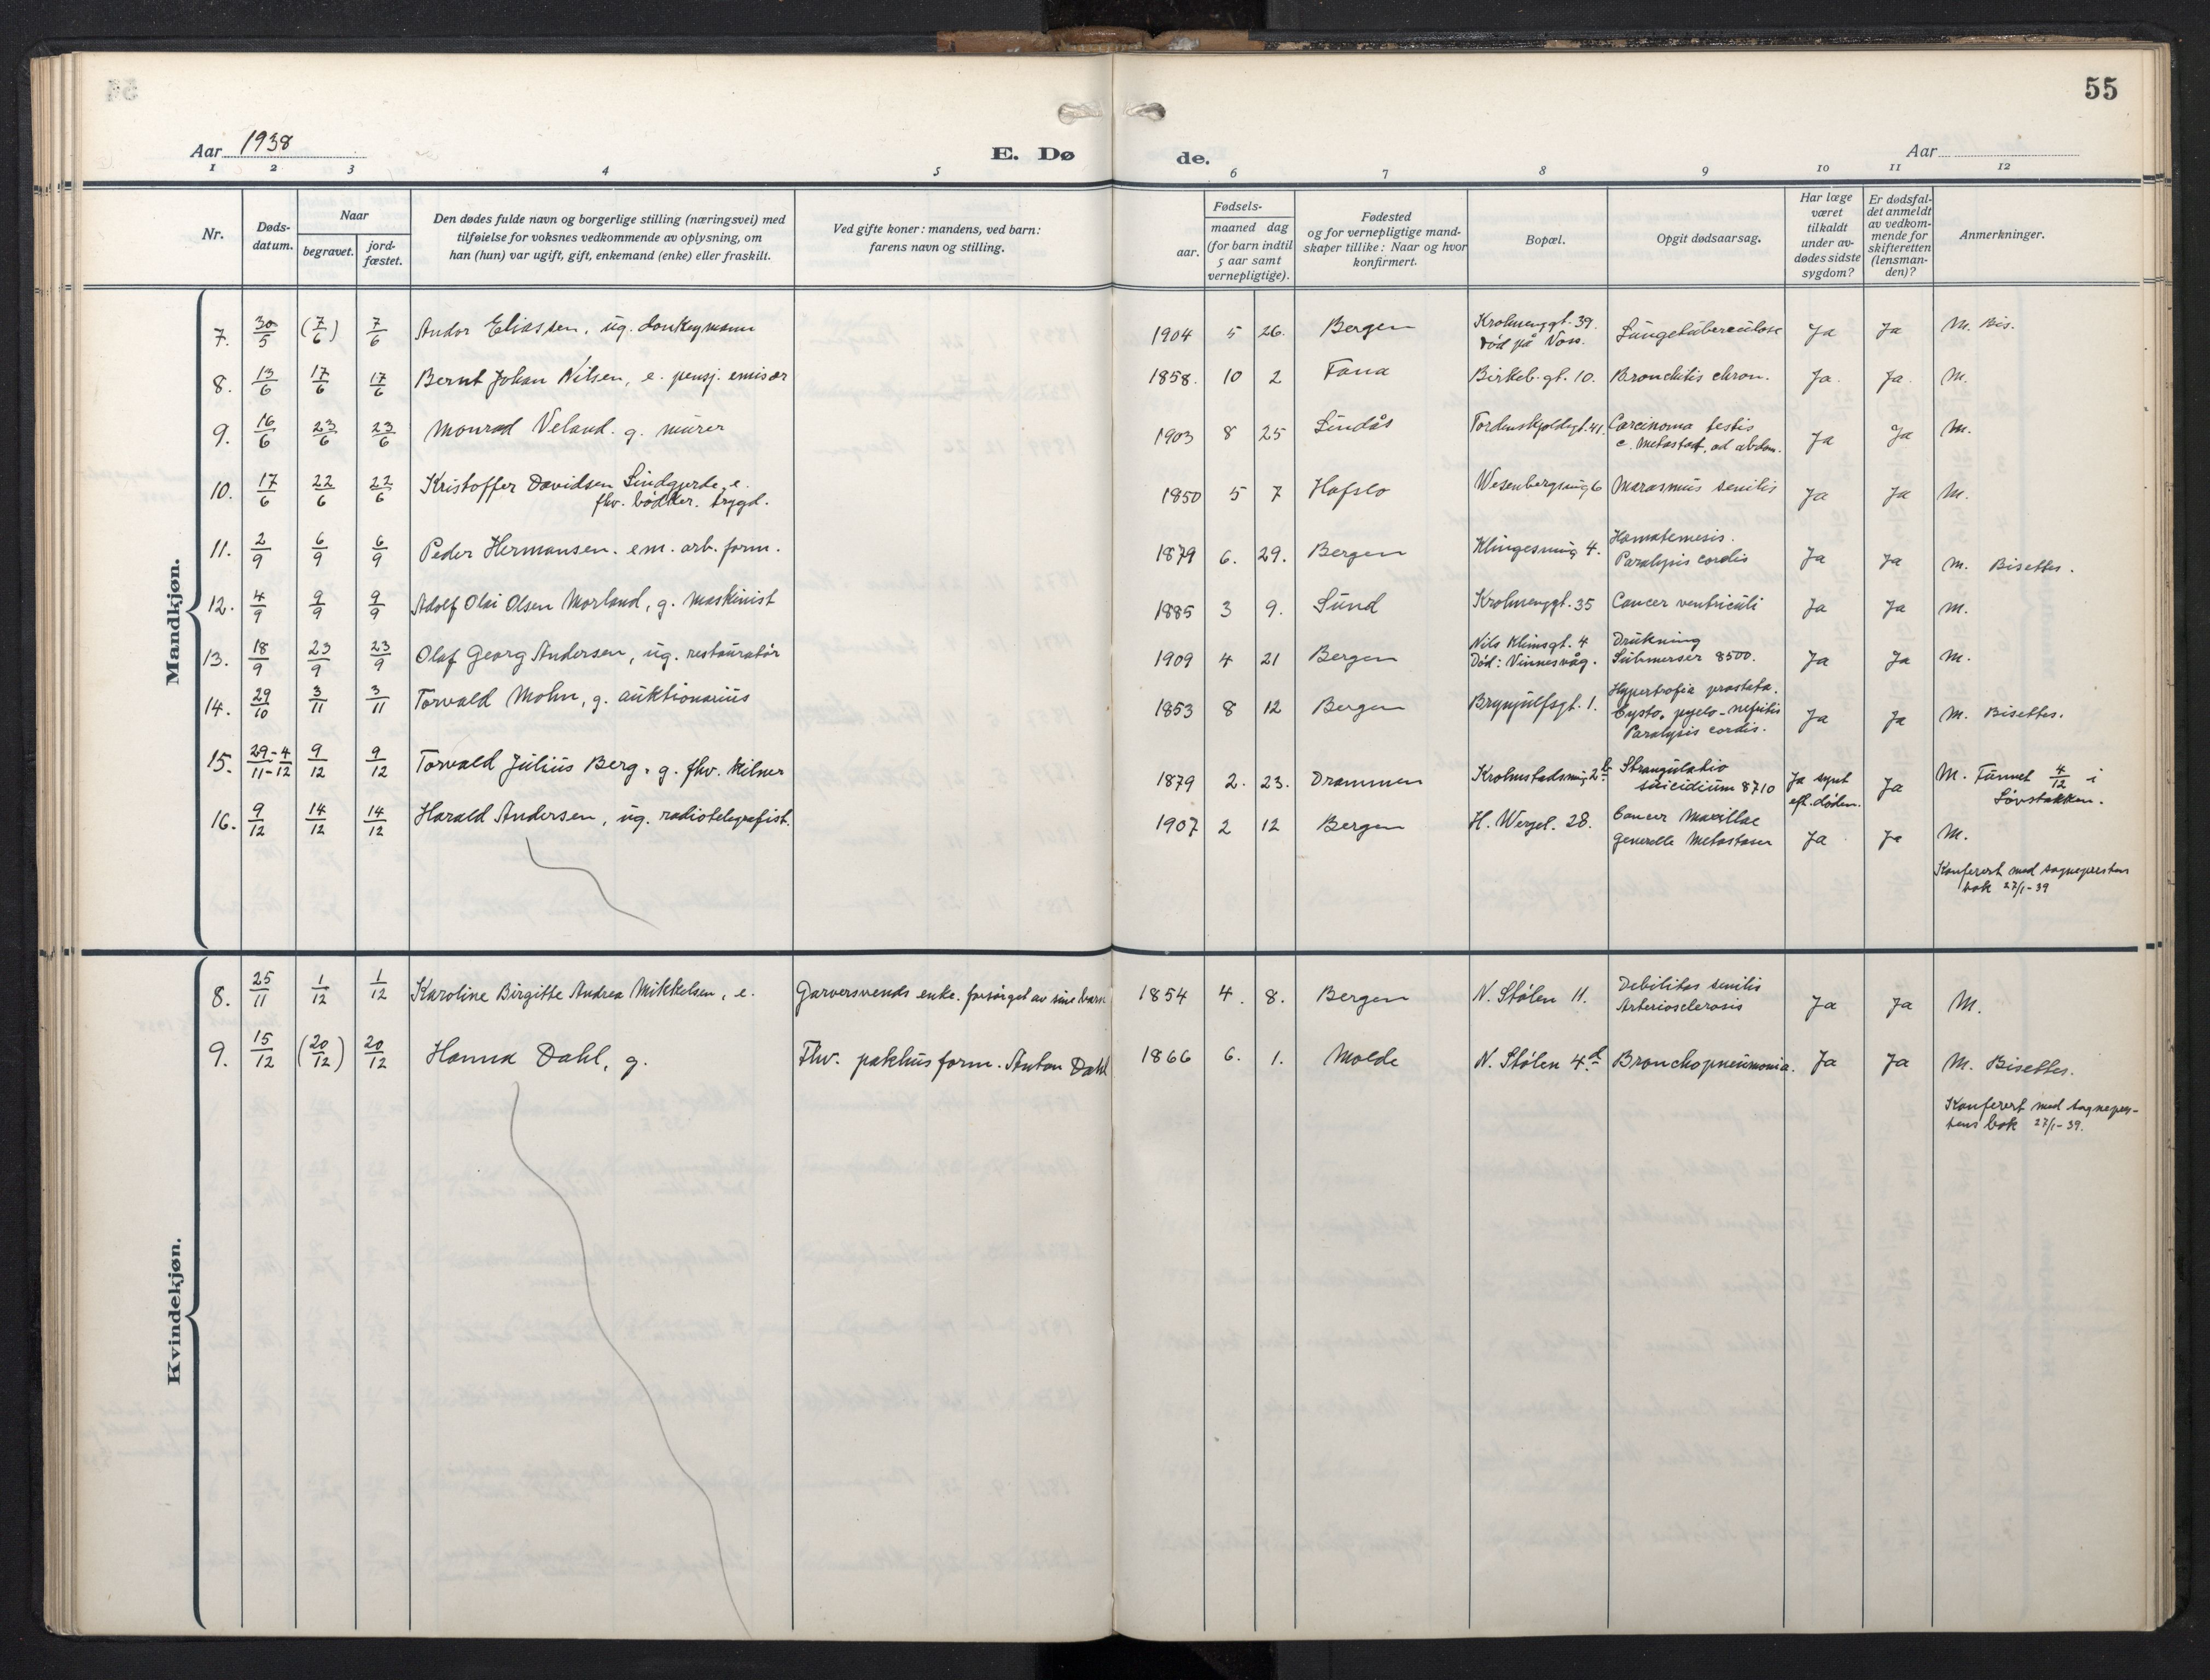 55
Aar 1938
E. Dø
de.
Aar
1 2 3 4 5 6 7 8 9 10 11 12
Nr.
Døds-
datum.
Naar
begravet.
jord-
fæstet.
Den dødes fulde navn og borgerlige stilling (næringsvei) med
tilføielse for voksnes vedkommende av oplysning, om
han (hun) var ugift, gift, enkemand (enke) eller fraskilt.
Ved gifte koner: mandens, ved barn:
farens navn og stilling.
Fødsels-
aar.
maaned dag
(for barn indtil
5 aar samt
vernepligtige).
Fødested
og for vernepligtige mand-
skaper tillike: Naar og hvor
konfirmert.
Bopæl.
Opgit dødsaarsag.
Har læge
været
tilkaldt
under av-
dødes sidste
sygdom?
Er dødsfal-
det anmeldt
av vedkom-
mende for
skifteretten
(lensman-
den)?
Anmerkninger.
Mandkjøn.
7. 30/5 (7/6) 7/6 Andor Eliassen, ug. donkeymann 1904 5 26. Bergen Krohnenggt. 39. Lungetuberculose Ja Ja M. Bis.
død på Voss.
8. 13/6 17/6 17/6 Bernt Johan Nilsen, e. pensj. emisær 1858. 10 2 Fana Birkeb. gt. 10. Bronchitis chron. Ja. Ja. M.
9. 16/6 23/6 23/6 Monrad Veland. g. murer 1903 8 25 Lindås Tordenskjoldsgt. 41. Carcinoma testis Ja Ja M.
c. metastas. ad abdom.
10. 17/6 22/6 22/6 Kristoffer Davidsen Lindgjerde, e. 1850 5 7 Hafslo Wesenbergsmug 6 Marasmus senilis Ja Ja M.
fhv. bødker. trygd.
11. 2/9 6/9 6/9 Peder Hermansen. em. arb. form. 1879 6. 29. Bergen Klingesmug 4. Hæmatemesis. Ja Ja M. Bisettes.
Paralysis cordis
12. 4/9 9/9 9/9 Adolf Olai Olsen Morland, g. maskinist 1885 3 9. Sund Krohnenggt. 35 Cancer ventriculi Ja Ja M.
13. 18/9 23/9 23/9 Olaf Georg Andersen, ug. restauratør 1909 4 21 Bergen Nils Klimsgt. 4 Drukning Ja Ja M.
Død: Vinnesvåg. Submersio 8500.
14. 29/10 3/11 3/11 Torvald Mohn, g. auktionarius 1853 8 12 Bergen Brynjulfsgt. 1. Hypertrofia prostata. Ja Ja M. Bisettes.
Cysto. pyelo-nefritis
Paralysis cordis.
15. 29/11-4/12 9/12 9/12 Torvald Julius Berg. g. fhv. kelner 1879 2. 23. Drammen Krohnstadsmug 2b Strangulatio Ja synt Ja M. Funnet 4/12 i
suicidium 8710 eft. døden. Løvstakken.
16. 9/12 14/12 14/12 Harald Andersen, ug. radiotelegrafist. 1907 2 12 Bergen H. Wergel. 28. Cancer Maxillae Ja Ja M.
generelle metastaser
Konferert med sogneprestens
bok 27/1-39
Kvindekjøn.
8. 25/11 1/12 1/12 Karoline Birgitte Andrea Mikkelsen, e. Garversvends enke. forsørget av sine barn 1854 4. 8. Bergen N. Stølen 11. Debilitas senilis Ja Ja M.
Arteriosclerosis
9. 15/12 (20/12) 20/12 Hanna Dahl, g. Fhv. pakhusform. Anton Dahl 1866 6. 1. Molde N. Stølen 4d Bronchopneumonia. Ja Ja M. Bisettes.
Konferert med sognepres-
tens bok 27/1-39.